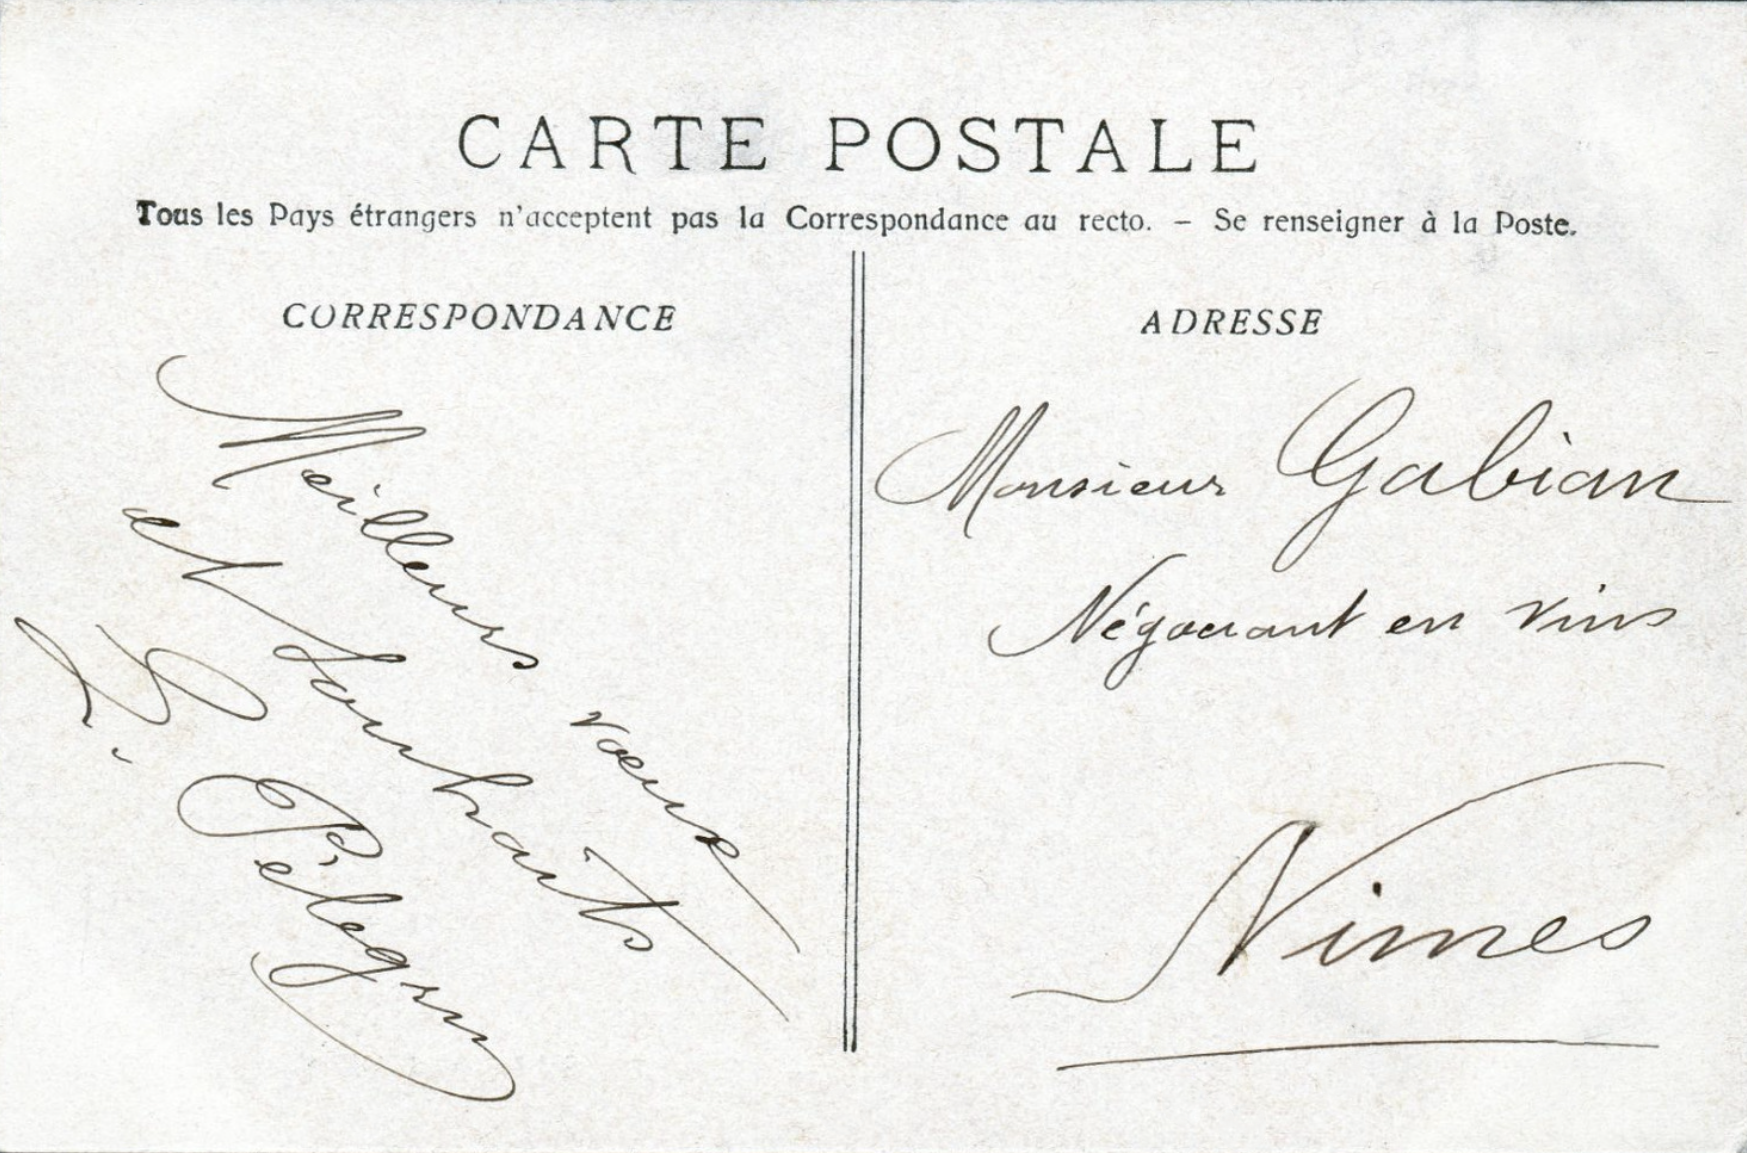 CARTE POSTALE
Tous les Pays étrangers n'acceptent pas la Correspondance au recto. – Se renseigner à la Poste.
CORRESPONDANCE
Meilleurs vœux
et souhaits
Pélegrin
ADRESSE
Monsieur Gabian
Négociant en vins
Nimes